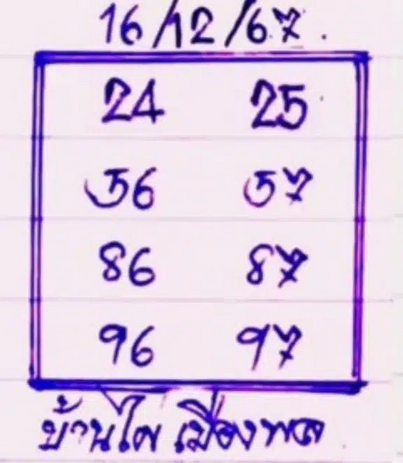 16/12/67.
24 25
56 57
86 87
96 97
บ้านไผ่ เมืองพล